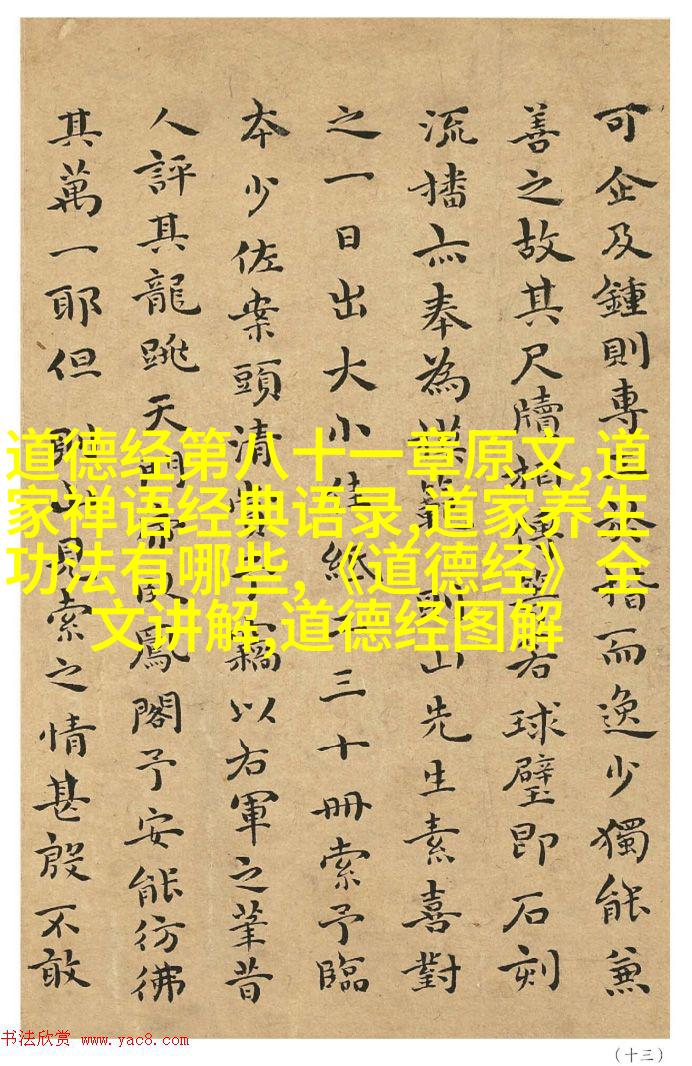 可企及鍾則專楷而逸少獨能兼
善之故其尺牘球璧即石刻
流播亦奉為模範山先生素喜對
之一日出大小佳紙三十冊索予臨
本少佐案頭清賞予竊以右軍之筆昔
人評其龍跳天門虎臥鳳閣予安能彷彿
其萬一耶但見索之情甚殷不敢
道德经第八十一章原文,道
家禅语经典语录,道家养生
功法有哪些,《道德经》全
文讲解,道德经图解
书法欣赏 www.yac8.com
(十三)